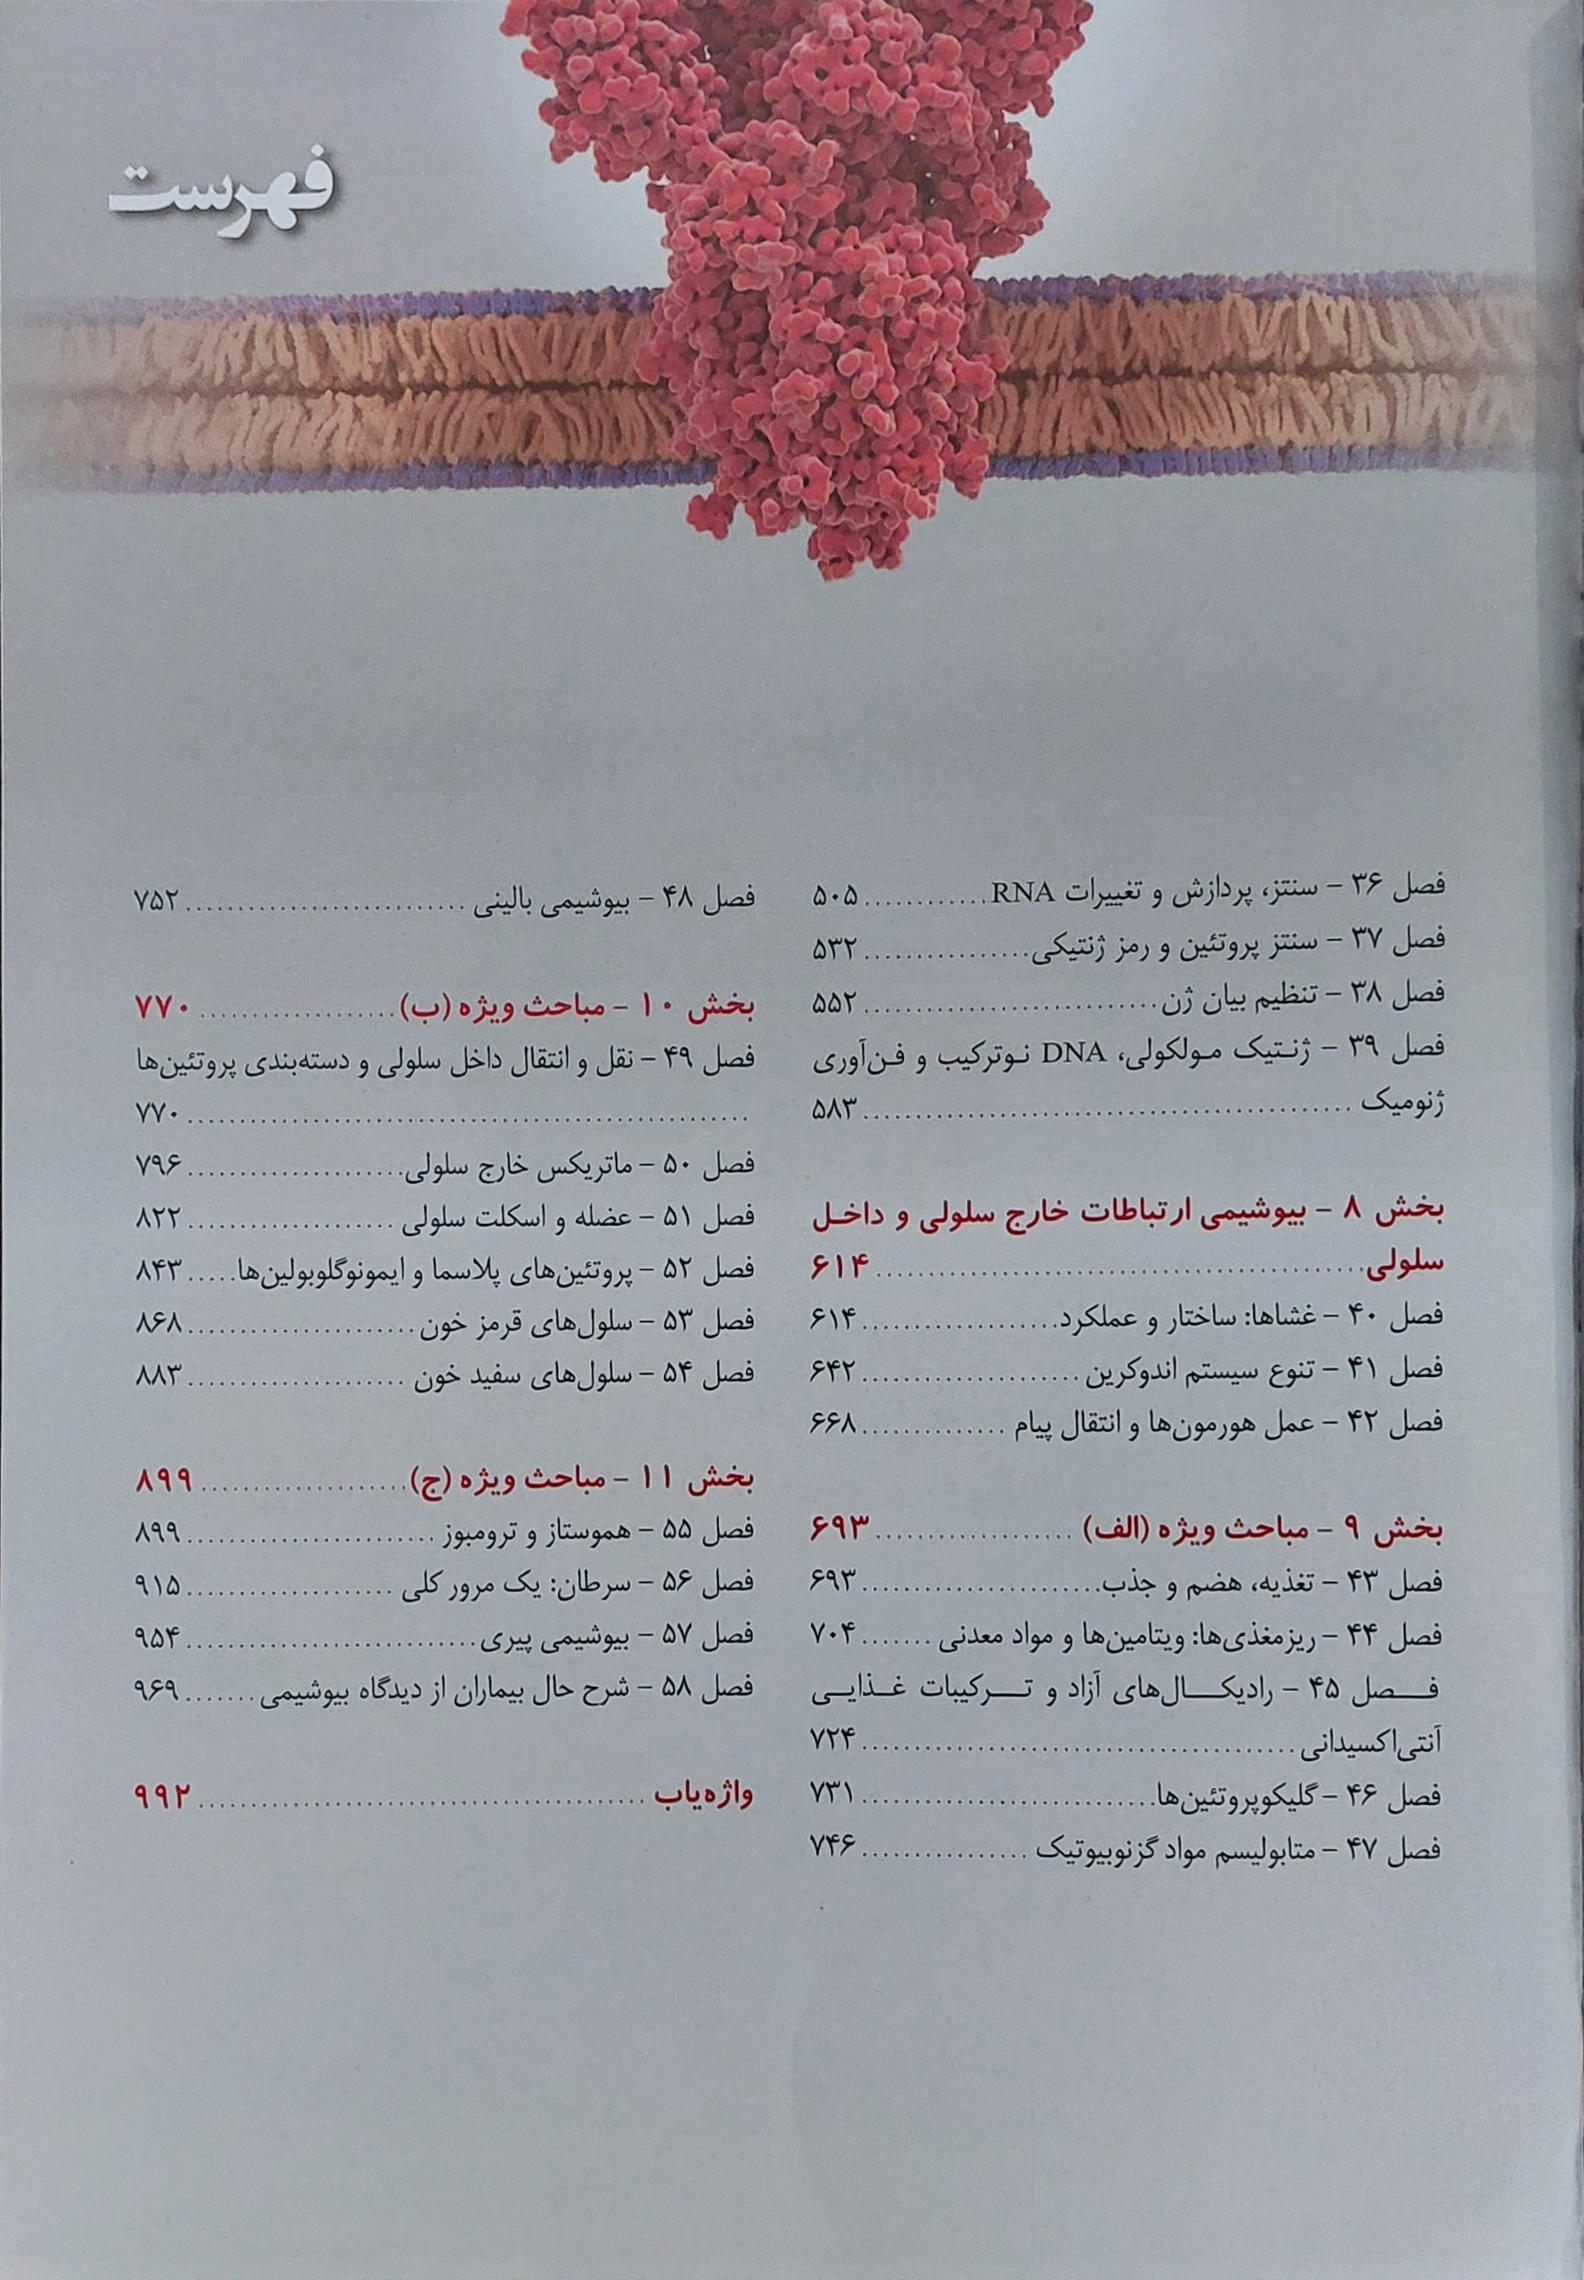 فهرست
فصل ۳۶ – سنتز، پردازش و تغییرات RNA ............ ۵۰۵
فصل ۳۷ – سنتز پروتئین و رمز ژنتیکی ................ ۵۳۲
فصل ۳۸ – تنظیم بیان ژن ............................ ۵۵۲
فصل ۳۹ – ژنتیک مولکولی، DNA نوترکیب و فن‌آوری
ژنومیک ............................................... ۵۸۳
بخش ۸ – بیوشیمی ارتباطات خارج سلولی و داخل
سلولی ............................................... ۶۱۴
فصل ۴۰ – غشاها: ساختار و عملکرد ................... ۶۱۴
فصل ۴۱ – تنوع سیستم اندوکرین ..................... ۶۴۲
فصل ۴۲ – عمل هورمون‌ها و انتقال پیام .............. ۶۶۸
بخش ۹ – مباحث ویژه (الف) ................... ۶۹۳
فصل ۴۳ – تغذیه، هضم و جذب ....................... ۶۹۳
فصل ۴۴ – ریزمغذی‌ها: ویتامین‌ها و مواد معدنی ....... ۷۰۴
فصل ۴۵ – رادیکال‌های آزاد و ترکیبات غذایی
آنتی‌اکسیدانی .......................................... ۷۲۴
فصل ۴۶ – گلیکوپروتئین‌ها ............................ ۷۳۱
فصل ۴۷ – متابولیسم مواد گزنوبیوتیک ................ ۷۴۶
فصل ۴۸ – بیوشیمی بالینی ........................... ۷۵۲
بخش ۱۰ – مباحث ویژه (ب) ................... ۷۷۰
فصل ۴۹ – نقل و انتقال داخل سلولی و دسته‌بندی پروتئین‌ها
...................................................... ۷۷۰
فصل ۵۰ – ماتریکس خارج سلولی ..................... ۷۹۶
فصل ۵۱ – عضله و اسکلت سلولی .................... ۸۲۲
فصل ۵۲ – پروتئین‌های پلاسما و ایمونوگلوبولین‌ها ..... ۸۴۳
فصل ۵۳ – سلول‌های قرمز خون ...................... ۸۶۸
فصل ۵۴ – سلول‌های سفید خون ..................... ۸۸۳
بخش ۱۱ – مباحث ویژه (ج) .................... ۸۹۹
فصل ۵۵ – هموستاز و ترومبوز ........................ ۸۹۹
فصل ۵۶ – سرطان: یک مرور کلی .................... ۹۱۵
فصل ۵۷ – بیوشیمی پیری ............................ ۹۵۴
فصل ۵۸ – شرح حال بیماران از دیدگاه بیوشیمی ....... ۹۶۹
واژه‌یاب ........................................... ۹۹۲